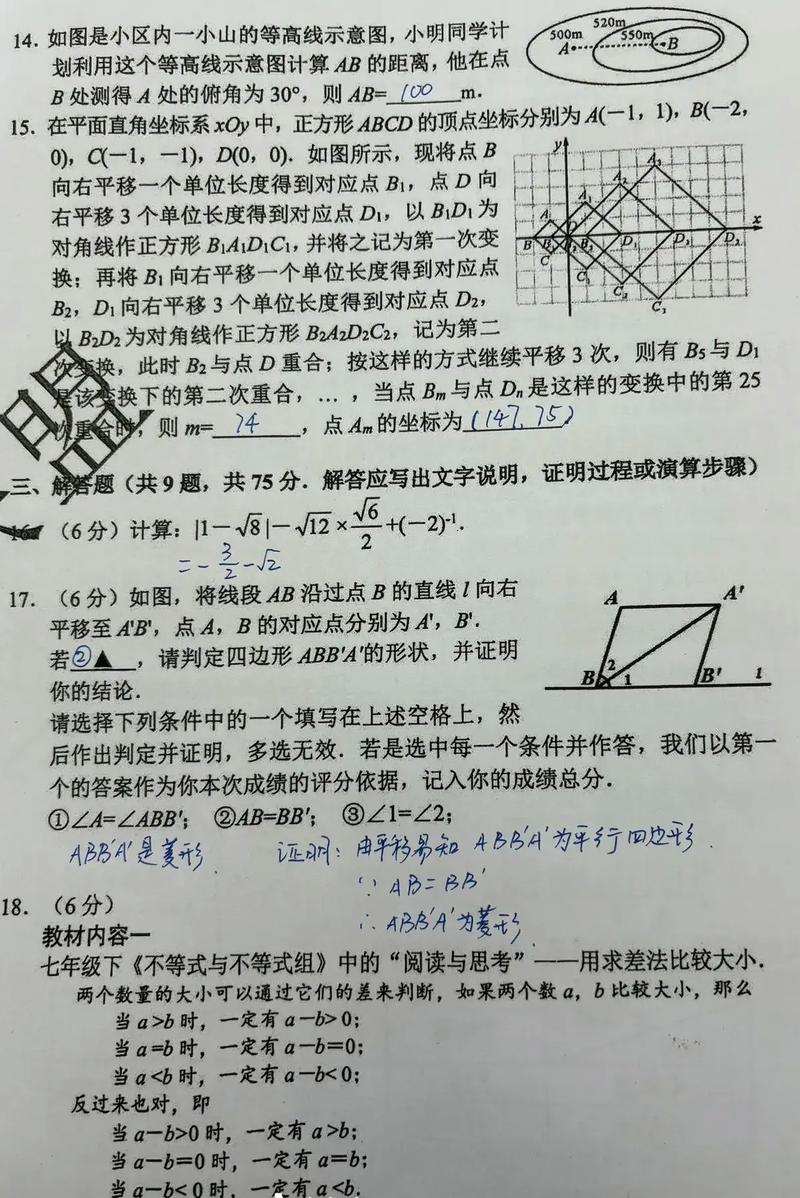 14. 如图是小区内一小山的等高线示意图，小明同学计
划利用这个等高线示意图计算 AB 的距离，他在点
B 处测得 A 处的俯角为 30°，则 AB=100m.
500m 520m 550m
A B
15. 在平面直角坐标系 xOy 中，正方形 ABCD 的顶点坐标分别为 A(－1，1)，B(－2，
0)，C(－1，－1)，D(0，0). 如图所示，现将点 B
向右平移一个单位长度得到对应点 B₁，点 D 向
右平移 3 个单位长度得到对应点 D₁，以 B₁D₁ 为
对角线作正方形 B₁A₁D₁C₁，并将之记为第一次变
换；再将 B₁ 向右平移一个单位长度得到对应点
B₂，D₁ 向右平移 3 个单位长度得到对应点 D₂，
以 B₂D₂ 为对角线作正方形 B₂A₂D₂C₂，记为第二
次变换，此时 B₂ 与点 D 重合；按这样的方式继续平移 3 次，则有 B₅ 与 D₁
是该变换下的第二次重合，…，当点 Bₘ 与点 Dₙ 是这样的变换中的第 25
次重合时，则 m=74，点 Aₘ 的坐标为(147, 75)
三、解答题（共 9 题，共 75 分．解答应写出文字说明，证明过程或演算步骤）
16. （6 分）计算：|1－√8|－√12×√6/2+(－2)⁻¹.
=－3/2－√2
17. （6 分）如图，将线段 AB 沿过点 B 的直线 l 向右
平移至 A'B'，点 A，B 的对应点分别为 A'，B'.
若②▲，请判定四边形 ABB'A'的形状，并证明
你的结论.
A A'
B 2 1 B' l
请选择下列条件中的一个填写在上述空格上，然
后作出判定并证明，多选无效．若是选中每一个条件并作答，我们以第一
个的答案作为你本次成绩的评分依据，记入你的成绩总分.
①∠A=∠ABB'； ②AB=BB'； ③∠1=∠2；
ABB'A'是菱形. 证明：由平移易知 ABB'A'为平行四边形.
∵ AB=BB'
∴ ABB'A'为菱形.
18. （6 分）
教材内容一
七年级下《不等式与不等式组》中的“阅读与思考”——用求差法比较大小.
两个数量的大小可以通过它们的差来判断，如果两个数 a，b 比较大小，那么
当 a>b 时，一定有 a－b>0；
当 a=b 时，一定有 a－b=0；
当 a<b 时，一定有 a－b<0；
反过来也对，即
当 a－b>0 时，一定有 a>b；
当 a－b=0 时，一定有 a=b；
当 a－b<0 时，一定有 a<b.